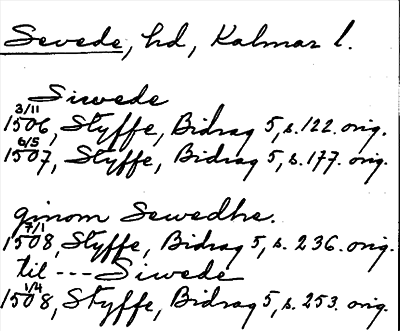 Sevede, hd, Kalmar l.
Siwede
3/11
1506, Styffe, Bidrag 5, s. 122. orig.
6/5
1507, Styffe, Bidrag 5, s. 177. orig.
ginom Sewedhe.
7/1
1508, Styffe, Bidrag 5, s. 236. orig.
til --- Siwede
1/4
1508, Styffe, Bidrag 5, s. 253. orig.